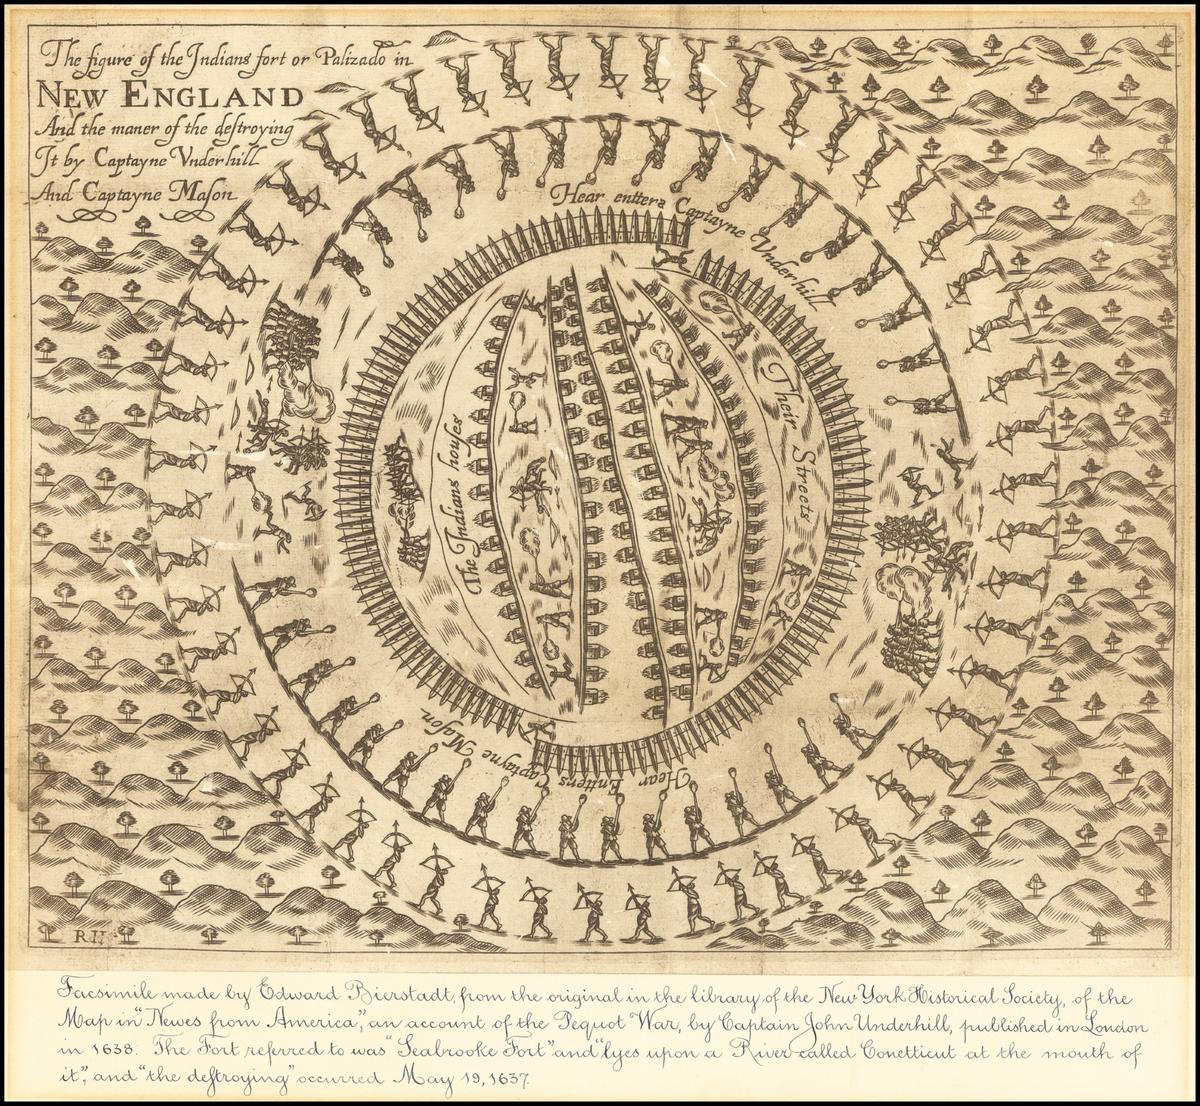 The figure of the Indians fort or Palizado in
NEW ENGLAND
And the maner of the destroying
It by Captayne Vnderhill
And Captayne Mason
Hear entters Captayne Vnderhill
Their Streets
The Indians houses
Hear Entters Captayne Mason
RH
Facsimile made by Edward Bierstadt, from the original in the library of the New York Historical Society, of the
Map in "Newes from America", an account of the Pequot War, by Captain John Underhill, published in London
in 1638. The Fort referred to was "Seabrooke Fort" and "lyes upon a River called Conetticut at the mouth of
it", and "the destroying" occurred May 19, 1637.